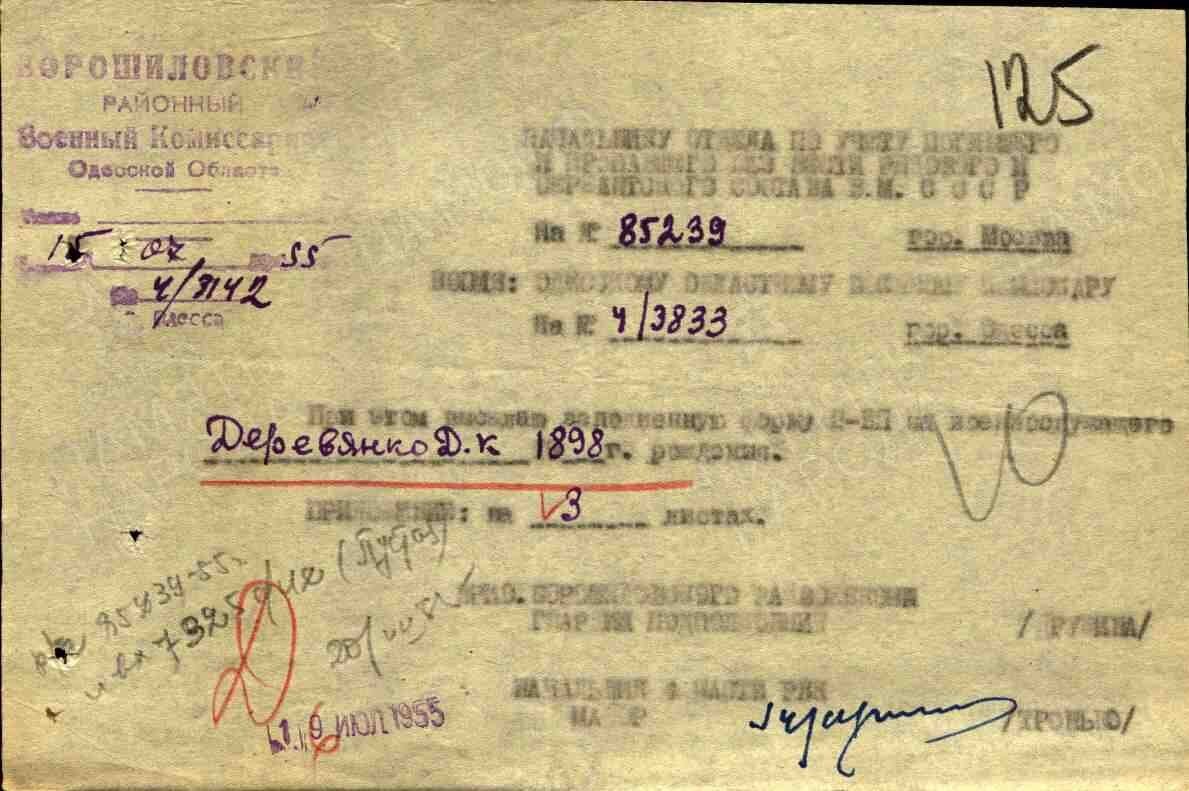 125
ВОРОШИЛОВСКИ
РАЙОННЫЙ
Военный Комиссариат
Одесской Области
15 07 55
№ 4/3142
Одесса
НАЧАЛЬНИКУ ОТДЕЛА ПО УЧЕТУ ПОГИБШЕГО
И ПРОПАВШЕГО БЕЗ ВЕСТИ РЯДОВОГО И
СЕРЖАНТСКОГО СОСТАВА В.М. С С С Р
На № 85239 гор. Москва
КОПИЯ: ОДЕССКОМУ ОБЛАСТНОМУ ВОЕННОМУ КОМИССАРУ
На № 4/3833 гор. Одесса
При этом высылаю заполненную форму 2-БП на военнослужащего
Деревянко Д.К 1898 г. рождения.
ПРИЛОЖЕНИЕ: на 3 листах.
ВРИО. ВОРОШИЛОВСКОГО РАЙВОЕНКОМА
ГВАРДИИ ПОДПОЛКОВНИК /ДРУЖИНА/
НАЧАЛЬНИК 4 ЧАСТИ РВК
МАЙОР /ТРОНЬКО/
19 ИЮЛ 1955